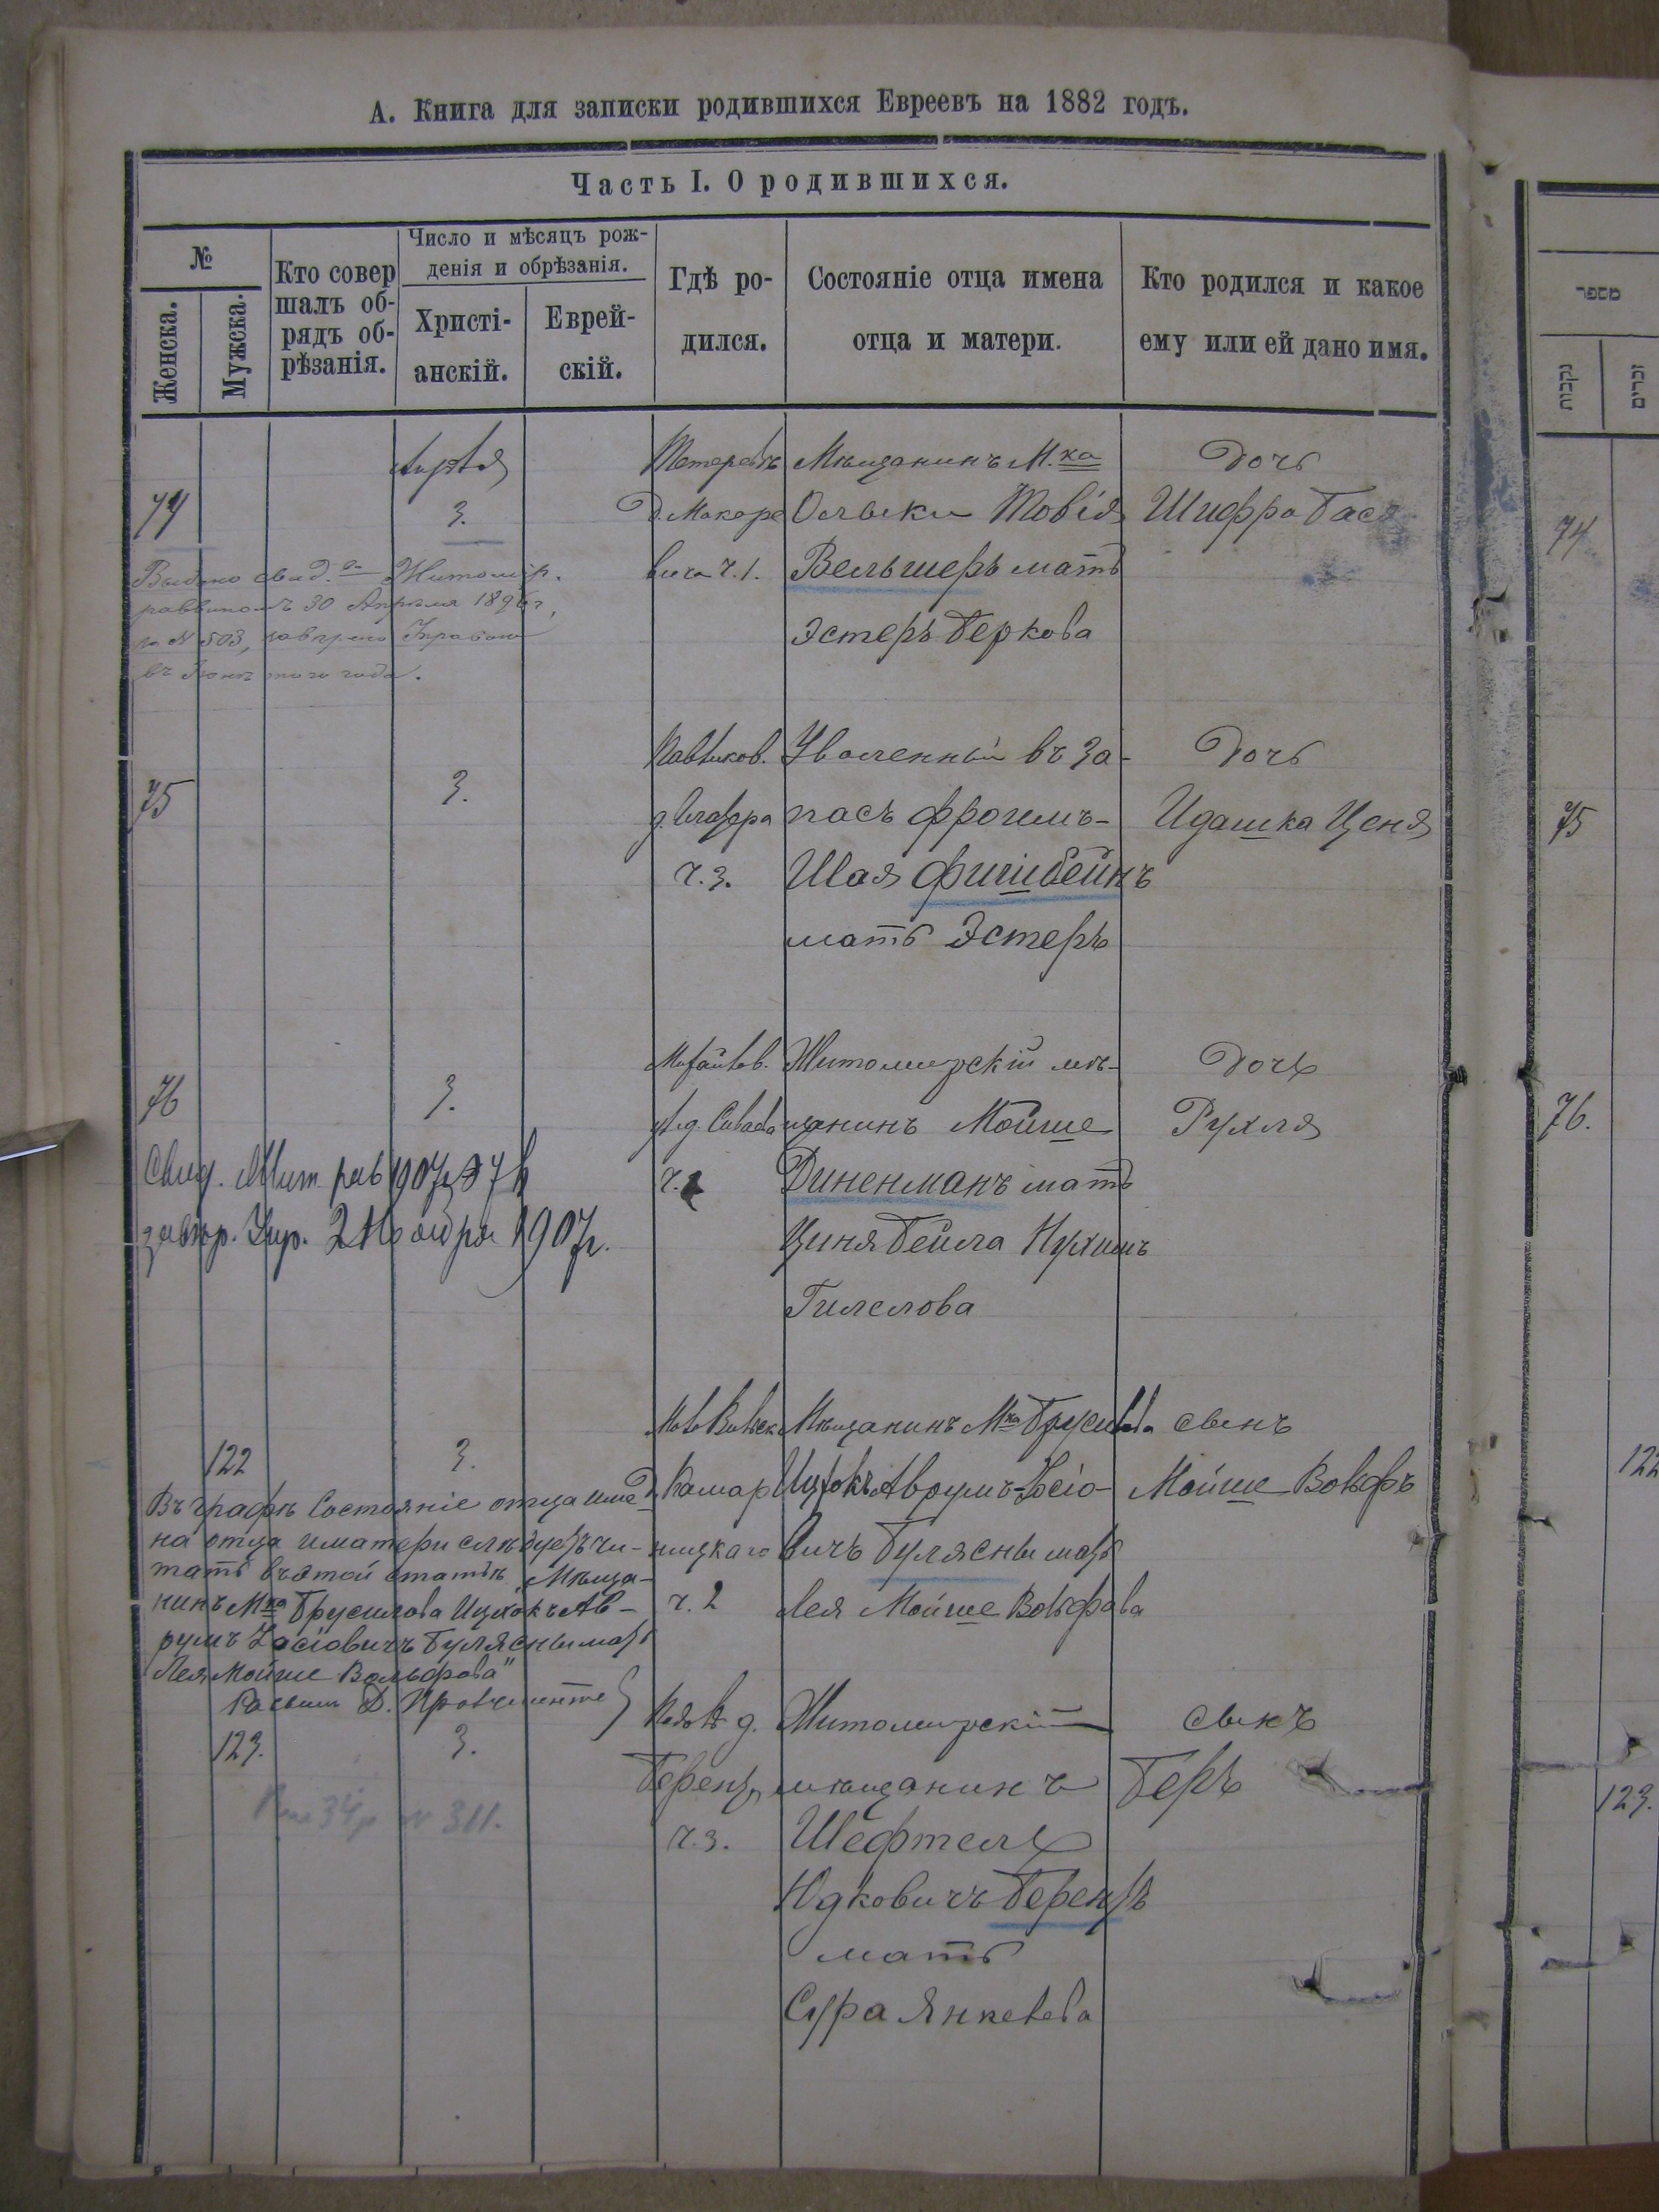 А. Книга для записки родившихся Евреевъ на 1882 годъ.
Часть I. О родившихся.
№
Женска.
Мужеска.
Кто совер
шалъ об-
рядъ об-
рѣзанія.
Число и мѣсяцъ рож-
денія и обрѣзанія.
Христі-
анскій.
Еврей-
скій.
Гдѣ ро-
дился.
Состояніе отца имена
отца и матери.
Кто родился и какое
ему или ей дано имя.
מספר
נקבות
זכרים
74
3.
Д. Макаре
вича ч. 1.
Мѣщанинъ М.ка
Товія
Вельшеръ мать
Эстеръ Беркова
Дочь
Шифра Бася
74
Выдано свид.
раввиномъ 30 Апрѣля 1896 г.
№ 503,
того года.
75
3.
ч. 3.
Уволенный въ за-
пасъ Фроимъ-
Шая Фишбейнъ
мать Эстеръ
Дочь
Идашка Ценя
75
76
3.
ч.
Житомирскій мѣ-
щанинъ Мойше
Диненманъ мать
Циня Бейла Нухимъ
Гилелова
Дочь
Рухля
76.
Свид. Жит. рав 1907 г.
завѣр. Упр. 2 Ноября 1907 г.
122
3.
Д. Камар
ницкаго
ч. 2
Мѣщанинъ Мка Брусилова
Ицхокъ Аврумъ-Іосіо-
вичъ Гулясны мать
Лея Мойше Вольфова
сынъ
Мойше Вольфъ
122
Въ графѣ Состояніе отца име-
на отца и матери слѣдуетъ чи-
тать въ этой статьѣ „Мѣща-
нинъ Мка Брусилова Ицхокъ Ав-
румъ Іосіовичъ Гулясны мать
Лея Мойше Вольфова"
123.
3.
д.
Беренз
ч. 3.
Житомирскій
мѣщанинъ
Шефтель
Юдковичъ Берензъ
мать
Сура Янкелева
сынъ
Беръ
123.
311.